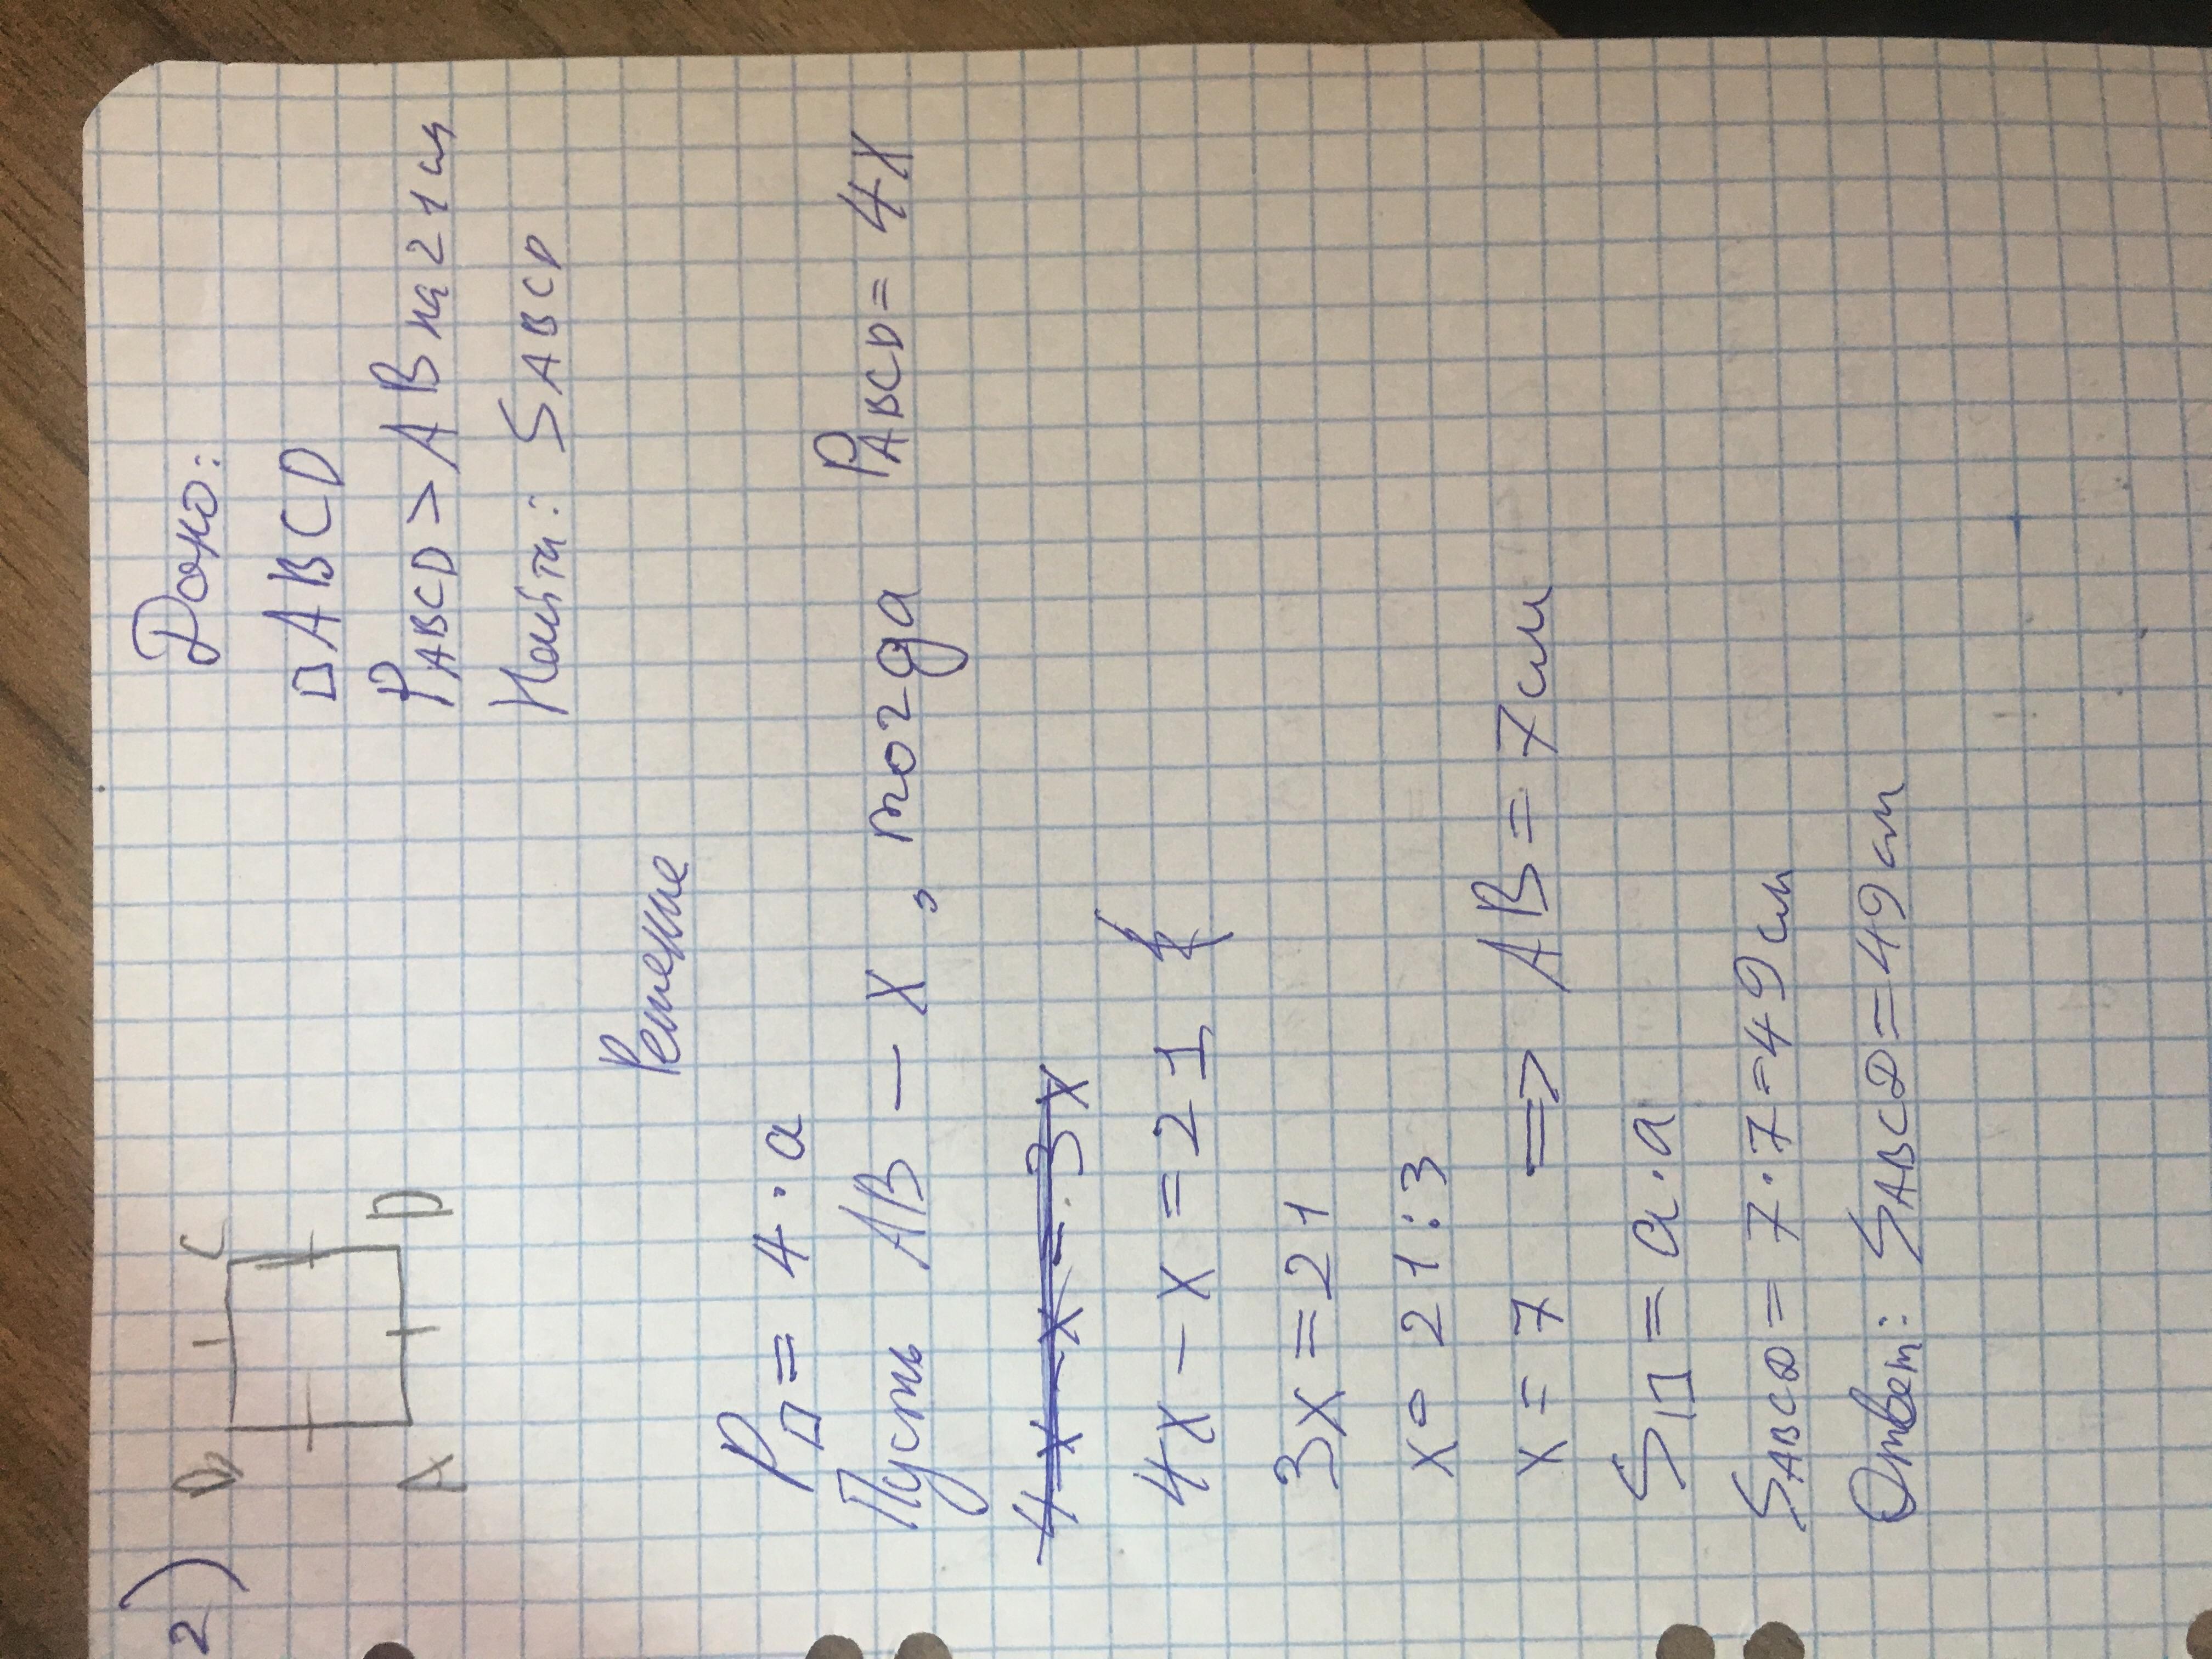 2)
B C
A D
Дано:
□ABCD
PABCD > AB на 21 см
Найти: SABCD
Решение
P□ = 4 · a
Пусть AB – x, тогда PABCD = 4x
4x – x = 3x
4x – x = 21
3x = 21
x = 21 : 3
x = 7 => AB = 7 см
S□ = a · a
SABCD = 7 · 7 = 49 см
Ответ: SABCD = 49 см